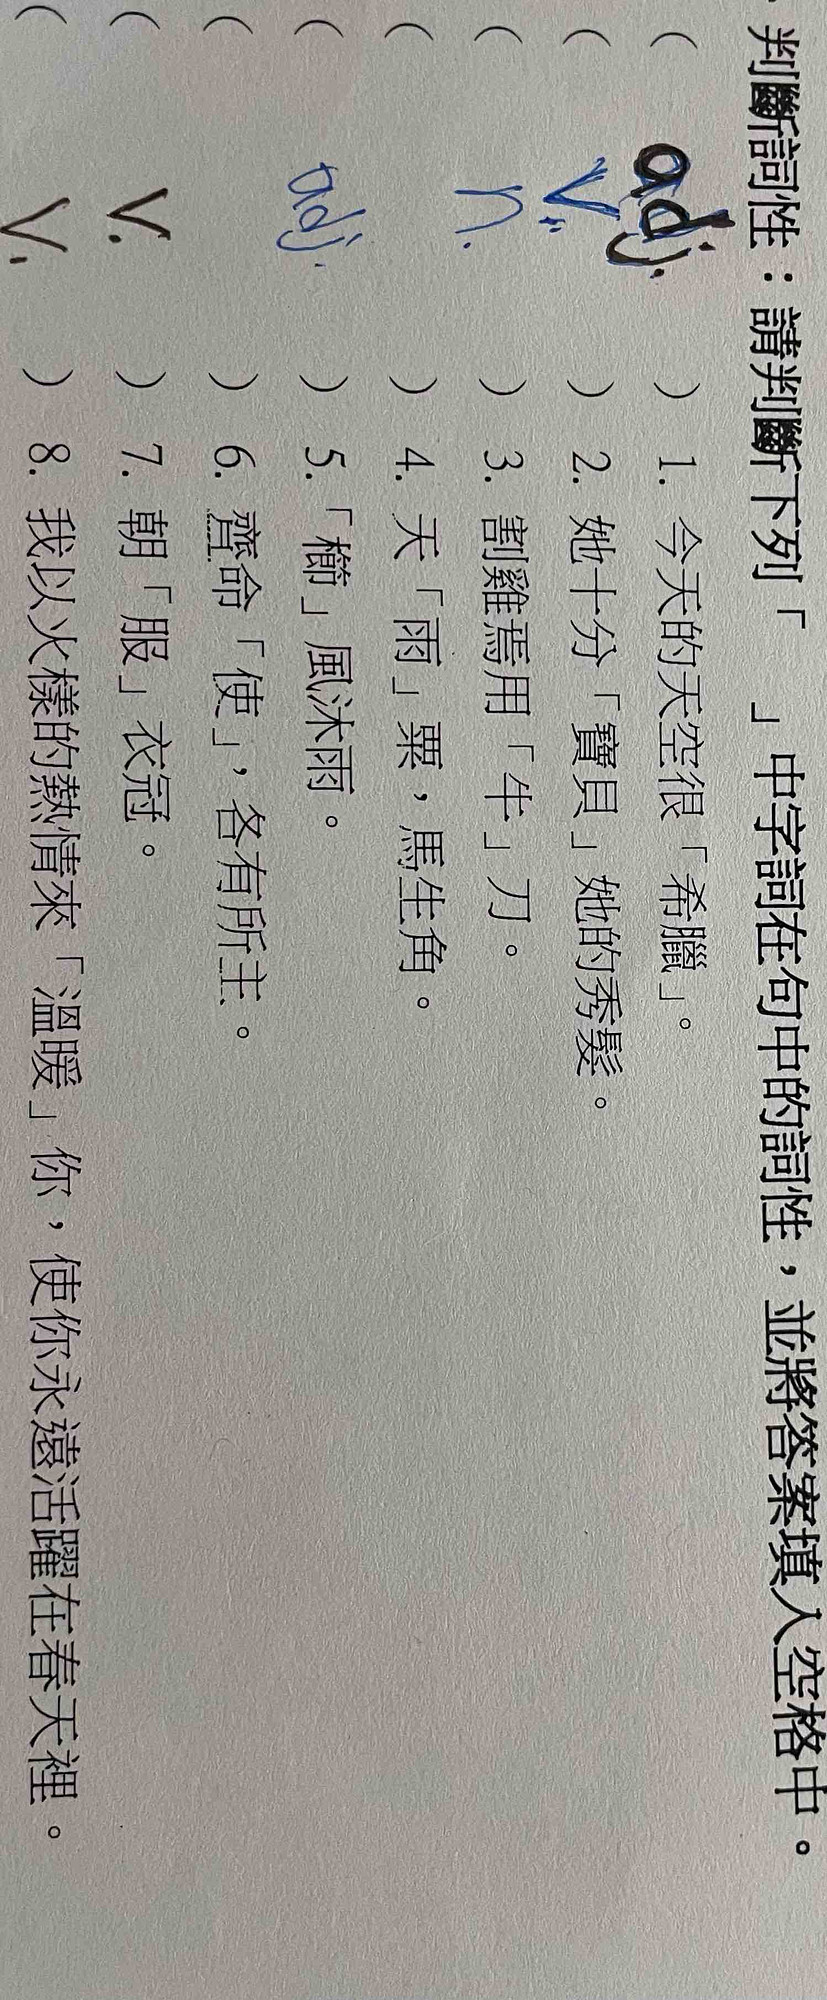 判斷詞性：請判斷下列「　」中字詞在句中的詞性，並將答案填入空格中。
（ adj. ）1. 今天的天空很「希臘」。
（ v. ）2. 她十分「寶貝」她的秀髮。
（ n. ）3. 割雞焉用「牛」刀。
（ ）4. 天「雨」粟，馬生角。
（ adj. ）5.「櫛」風沐雨。
（ ）6. 齊命「使」，各有所主。
（ v. ）7. 朝「服」衣冠。
（ v. ）8. 我以火樣的熱情來「溫暖」你，使你永遠活躍在春天裡。